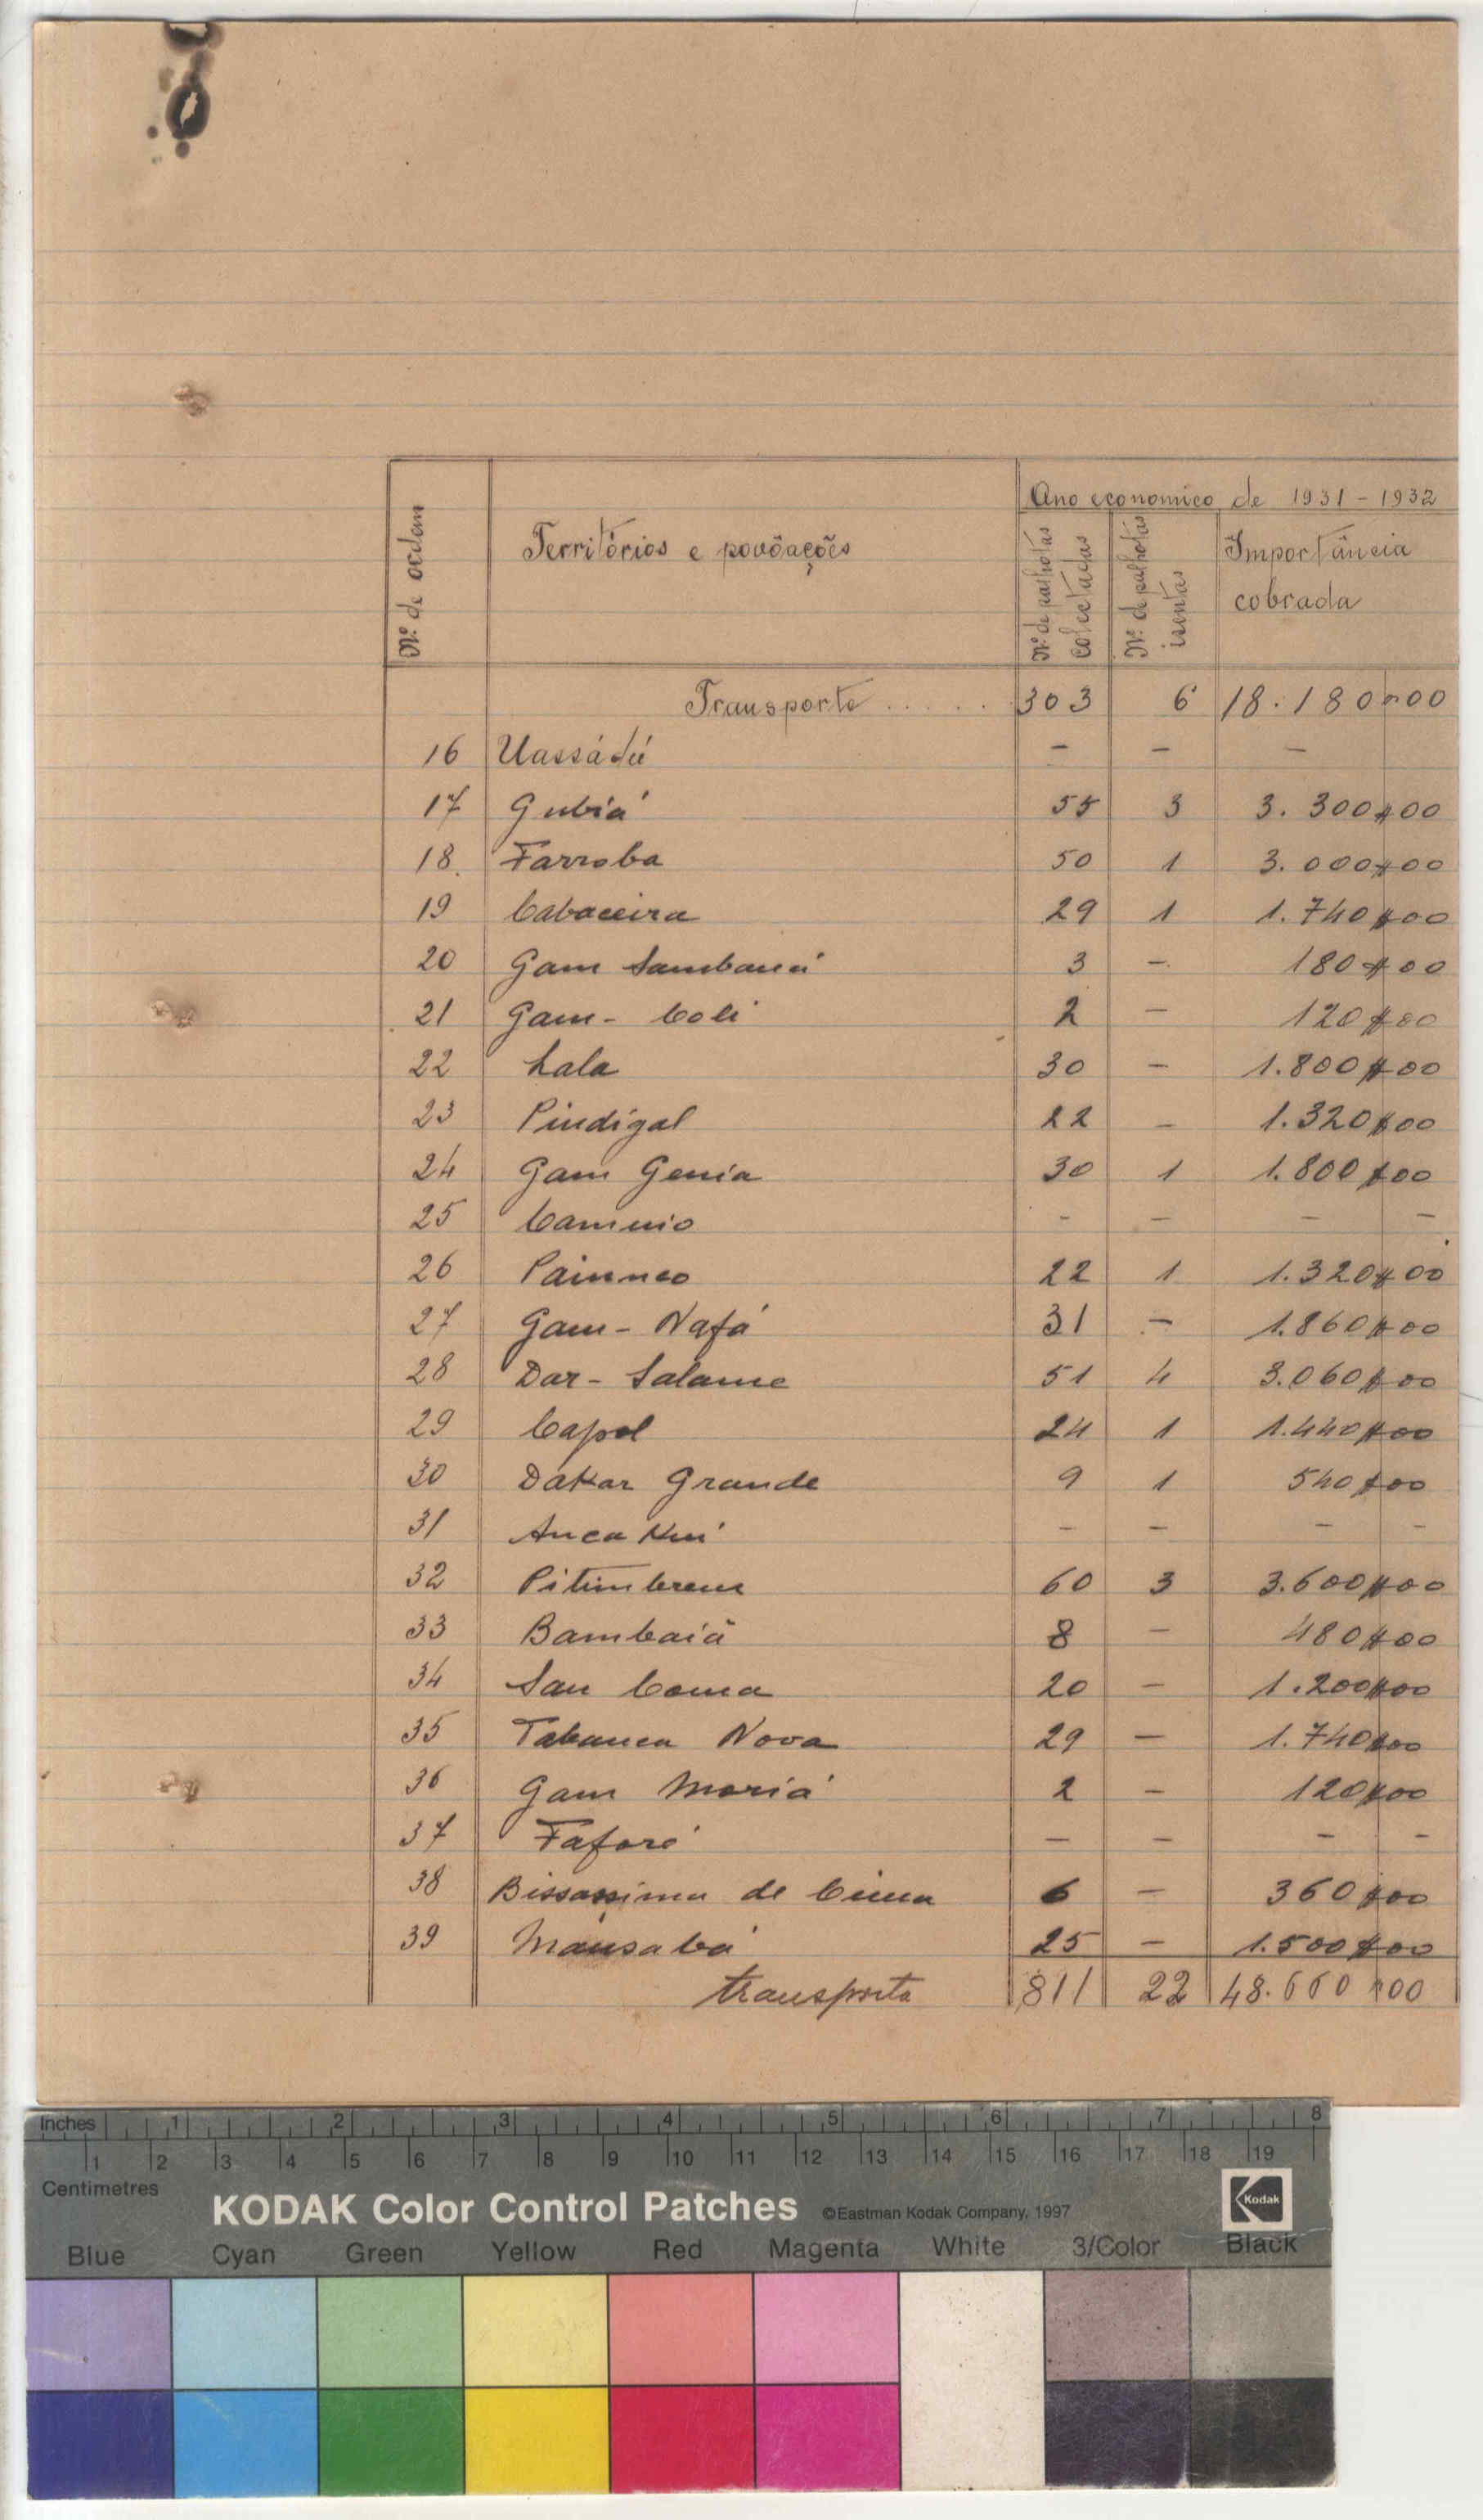 Nº de ordem
Territórios e povôações
Ano economico de 1931-1932
Nº de palhotas colectadas
Nº de palhotas isentas
Importância cobrada
Transporte ..... 303 6 18.180$00
16 Uassádú - - -
17 Gubiá 55 3 3.300$00
18. Farroba 50 1 3.000$00
19 Cabaceira 29 1 1.740$00
20 Gam 3 - 180$00
21 Gam-Coli 2 - 120$00
22 Lala 30 - 1.800$00
23 Pindigal 22 - 1.320$00
24 Gam Genia 30 1 1.800$00
25 - - - -
26 22 1 1.320$00
27 Gam-Nafá 31 - 1.860$00
28 Dar-Salame 51 4 3.060$00
29 Capol 24 1 1.440$00
30 Dakar Grande 9 1 540$00
31 - - - -
32 60 3 3.600$00
33 Bambaiã 8 - 480$00
34 San Coma 20 - 1.200$00
35 Tabanca Nova 29 - 1.740$00
36 Gam Mariá 2 - 120$00
37 Faforé - - - -
38 Bissassima de Cima 6 - 360$00
39 Mansabá 25 - 1.500$00
transporte 811 22 48.660$00
Inches 1 2 3 4 5 6 7 8
1 2 3 4 5 6 7 8 9 10 11 12 13 14 15 16 17 18 19
Centimetres
KODAK Color Control Patches ©Eastman Kodak Company, 1997 Kodak
Blue Cyan Green Yellow Red Magenta White 3/Color Black